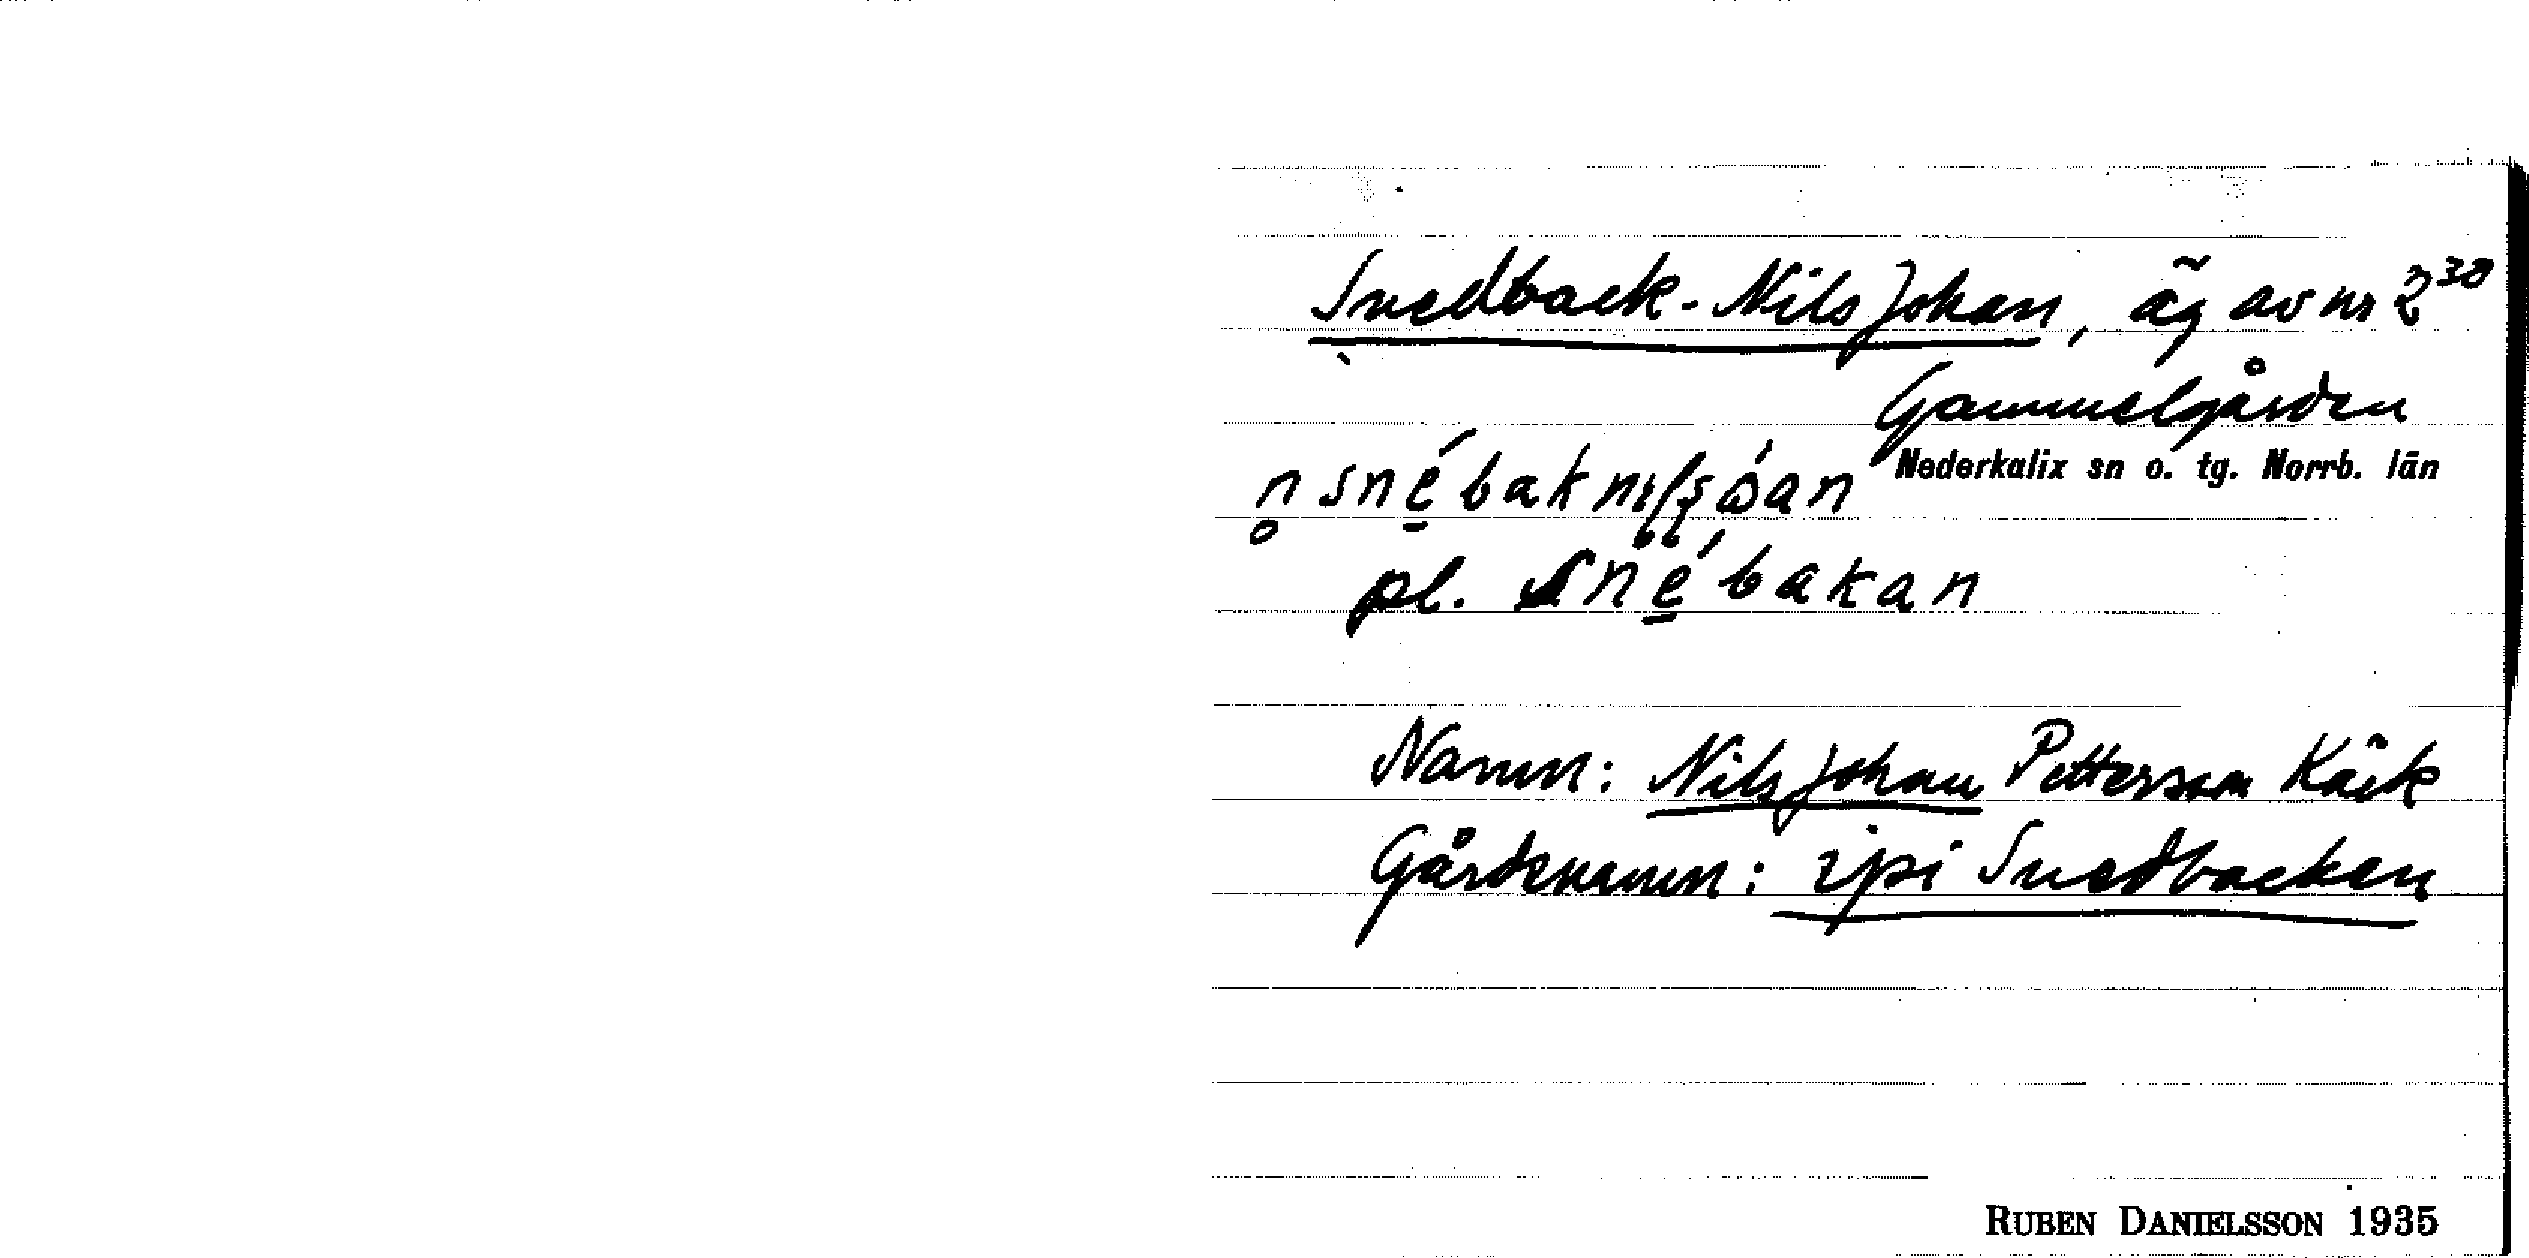 Snedback-Nils Johan, äg av nr 2³⁰
Gammelgården
Nederkalix sn o. tg. Norrb. län
n̥ sné̱bak nılsóan
pl. sné̱bakan
Namn: Nils Johan Pettersson Käck
Gårdsnamn: ipi Snedbacken
RUBEN DANIELSSON 1935